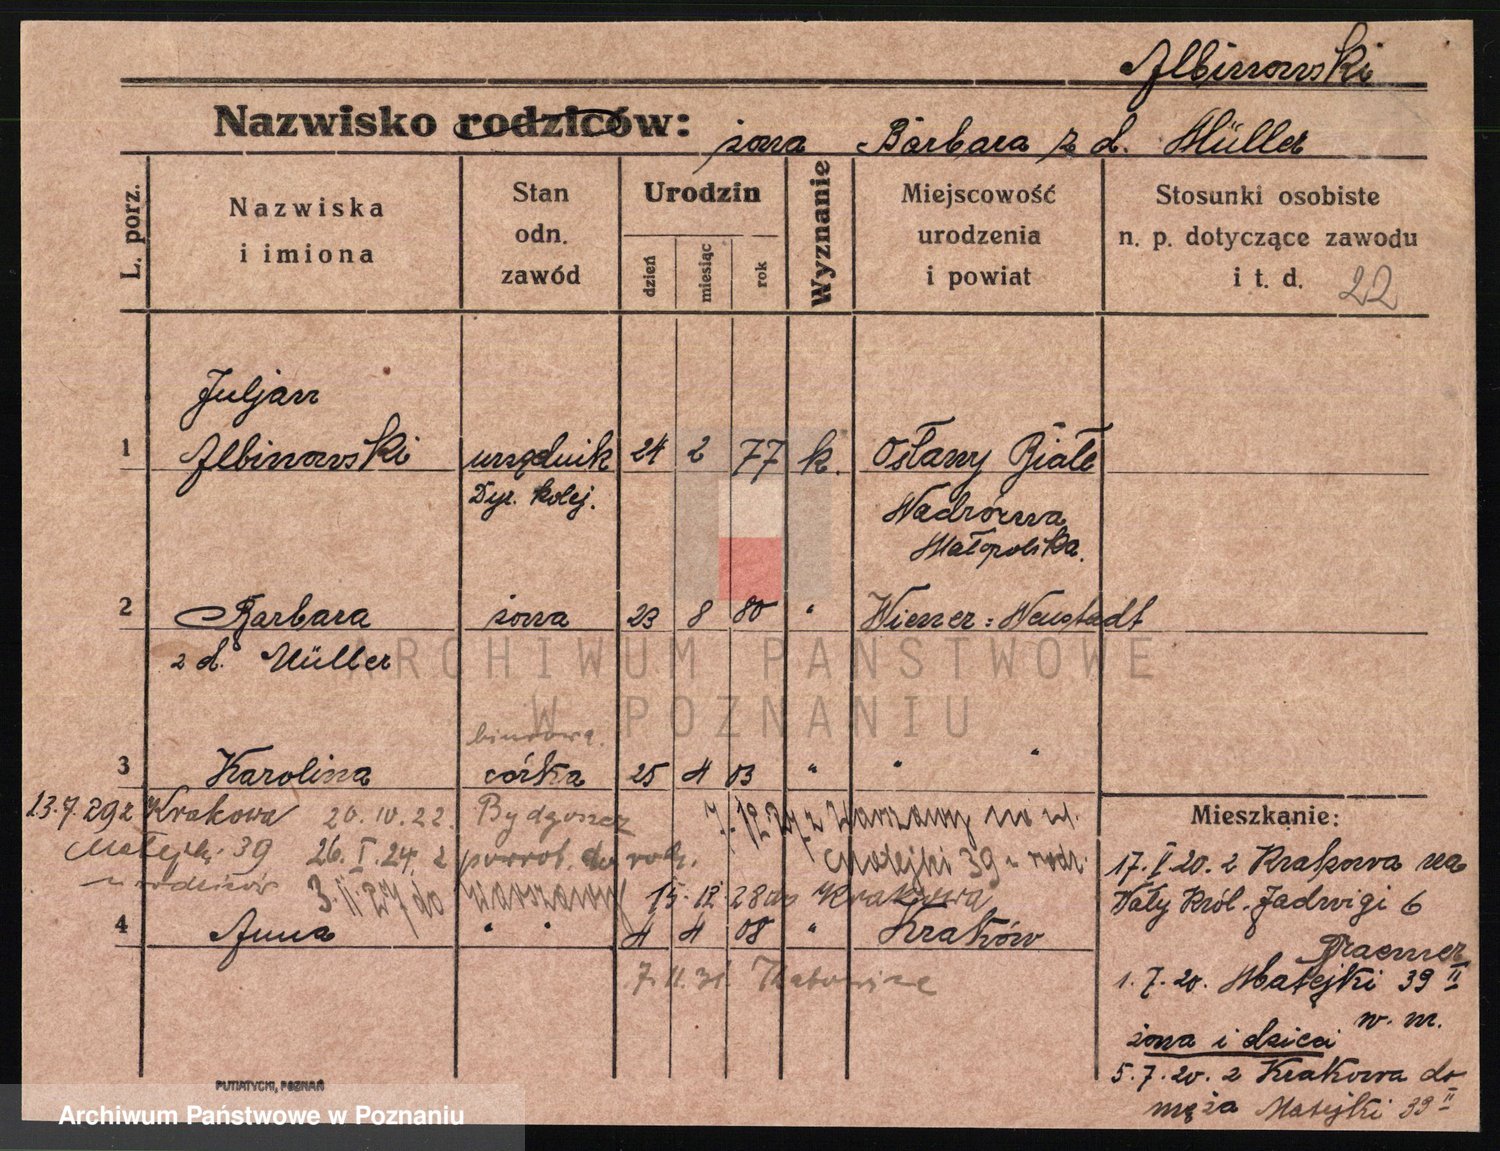 Albinowski
Nazwisko rodziców: żona Barbara z d. Müller
L. porz.
Nazwiska
i imiona
Stan
odn.
zawód
Urodzin
dzień
miesiąc
rok
Wyznanie
Miejscowość
urodzenia
i powiat
Stosunki osobiste
n. p. dotyczące zawodu
i t. d. 22
Juljan
1 Albinowski urzędnik 24 2 77 k. Osławy Białe
Dyr. kolej. Nadwórna
Małopolska.
2 Barbara żona 23 8 80 " Wiener=Neustadt
z d. Müller
biurowa.
3 Karolina córka 25 4 03 " " "
13.7.29 z Krakowa 20.IV.22. Bydgoszcz 7.12.27 z Warszawy na ul.
Matejki 39 26.I.24. z powrot. do rodz. Matejki 39 u rodz.
u rodziców 3.II.27 do Warszawy 15.12.28 do Krakowa
4 Anna " " 4 4 08 " Kraków
7.11.31. Katowice
Mieszkanie:
17.V.20. z Krakowa na
Wały Król. Jadwigi 6
1.7.20. Matejki 39 II
w. m.
żona i dzieci
5.7.20. z Krakowa do
męża Matejki 39 II
PUTIATYCKI, POZNAŃ
ARCHIWUM PAŃSTWOWE
W POZNANIU
Archiwum Państwowe w Poznaniu